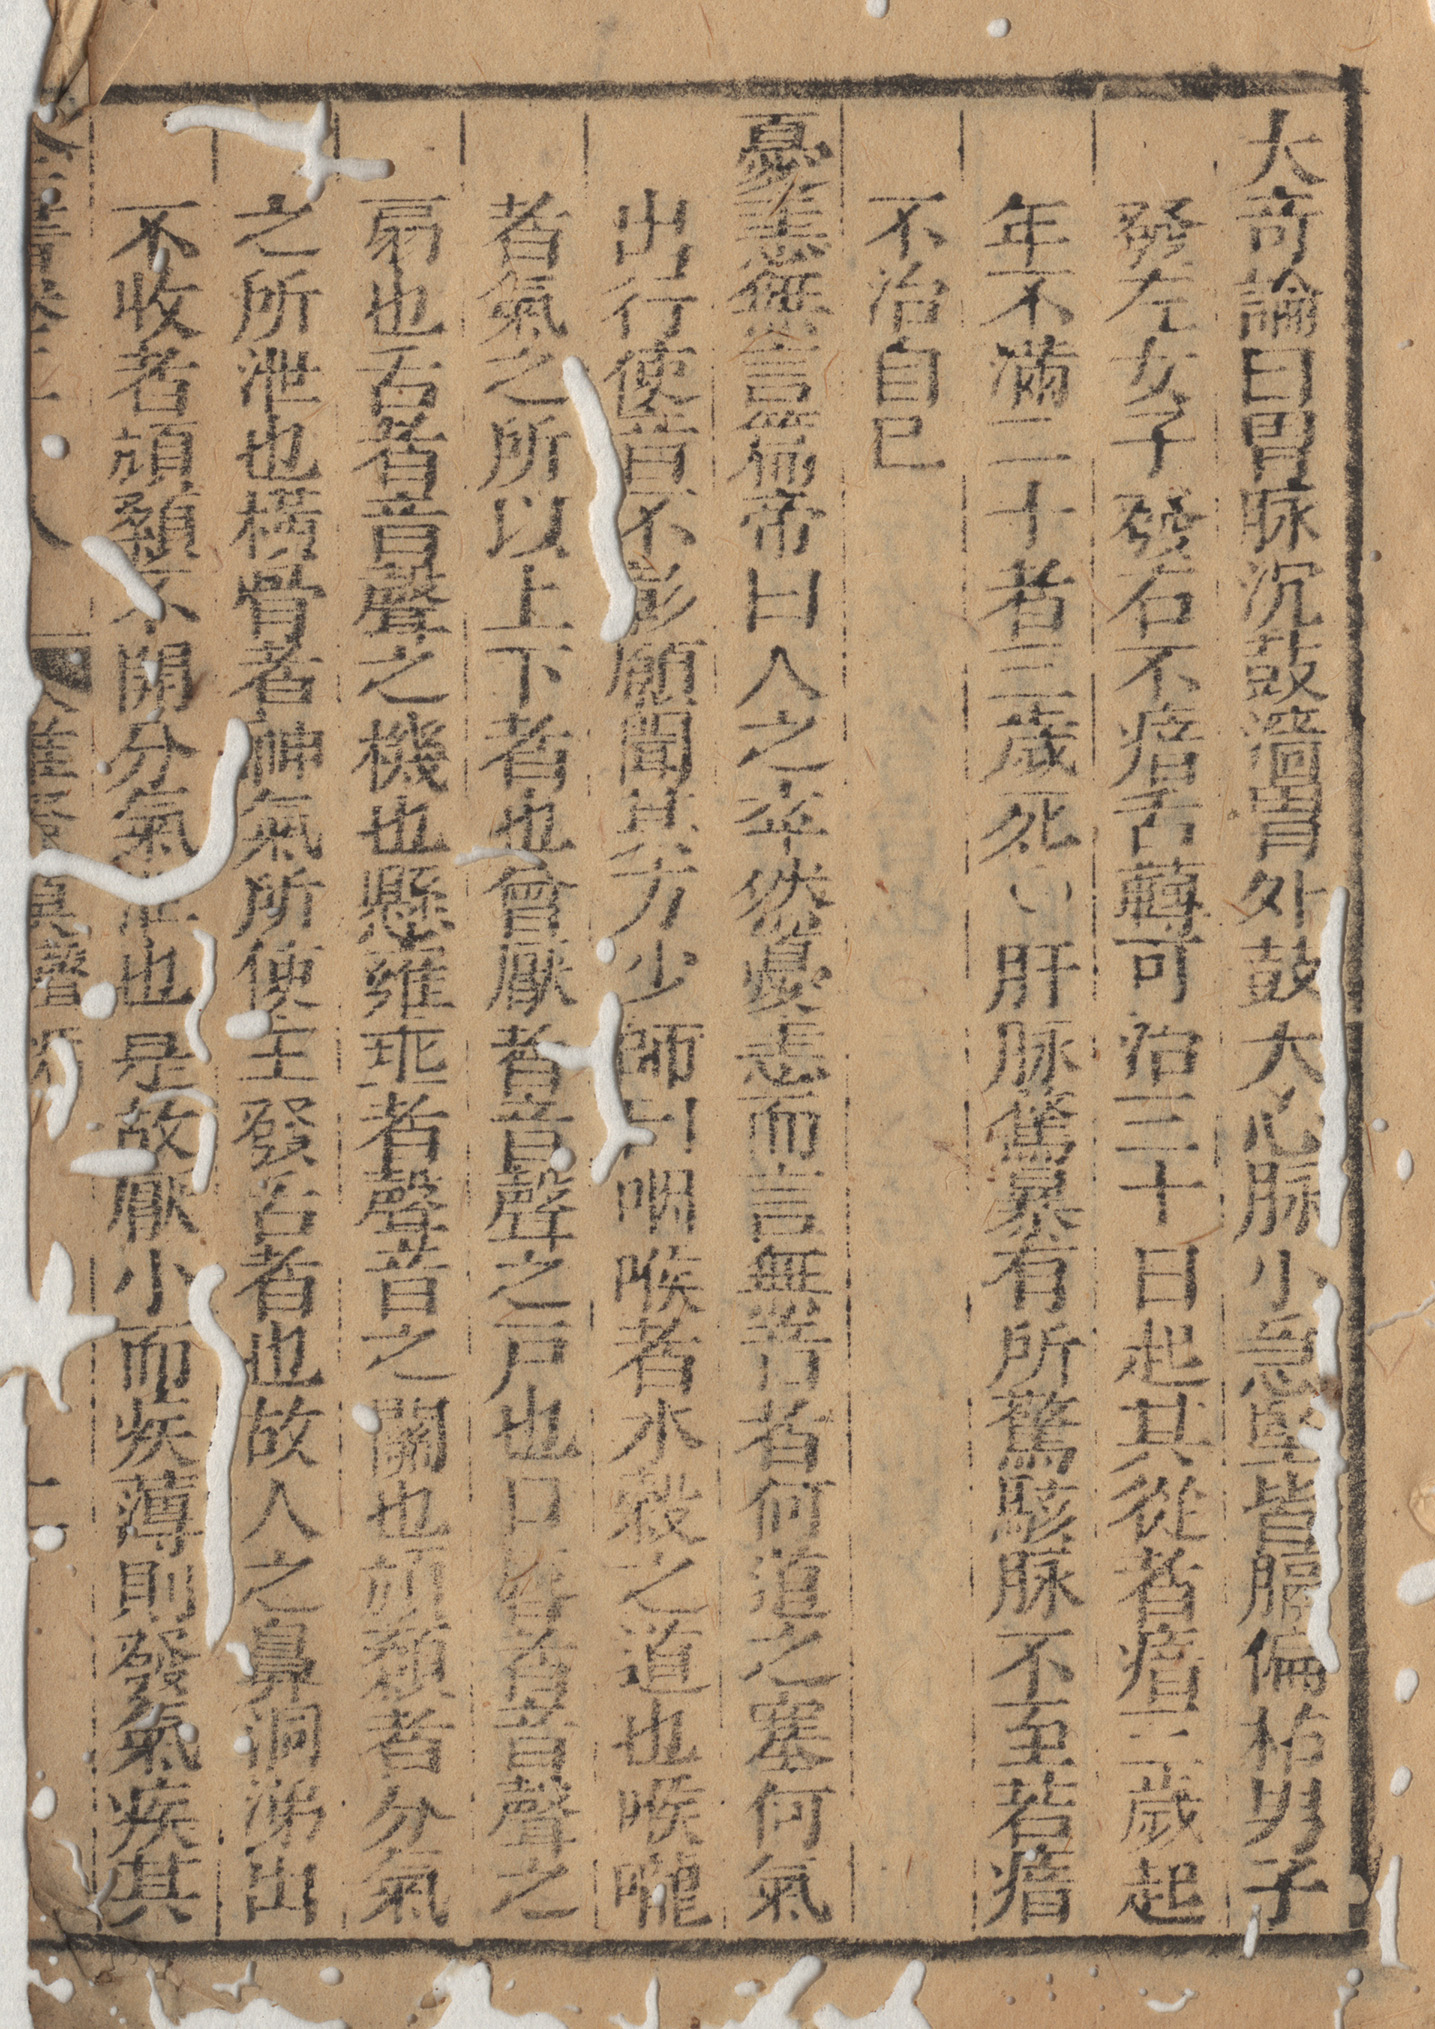 大奇論曰胃脉沉鼓濇胃外鼓大心脉小急堅皆膈偏枯男子
發左女子發右不瘖舌轉可治三十日起其從者瘖三歲起
年不滿二十者三歲死○肝脉驚暴有所驚駭脉不至若瘖
不治自已
憂恚無言篇帝曰人之卒然憂恚而言無音者何道之塞何氣
出行使音不彰願聞其方少師曰咽喉者水穀之道也喉嚨
者氣之所以上下者也會厭者音聲之戶也口唇者音聲之
扇也舌者音聲之機也懸雍乖者聲音之關也頏顙者分氣
之所泄也橫骨者神氣所使主發舌者也故人之鼻洞涕出
不收者頏顙不開分氣泄也是故厭小而疾薄則發氣疾其